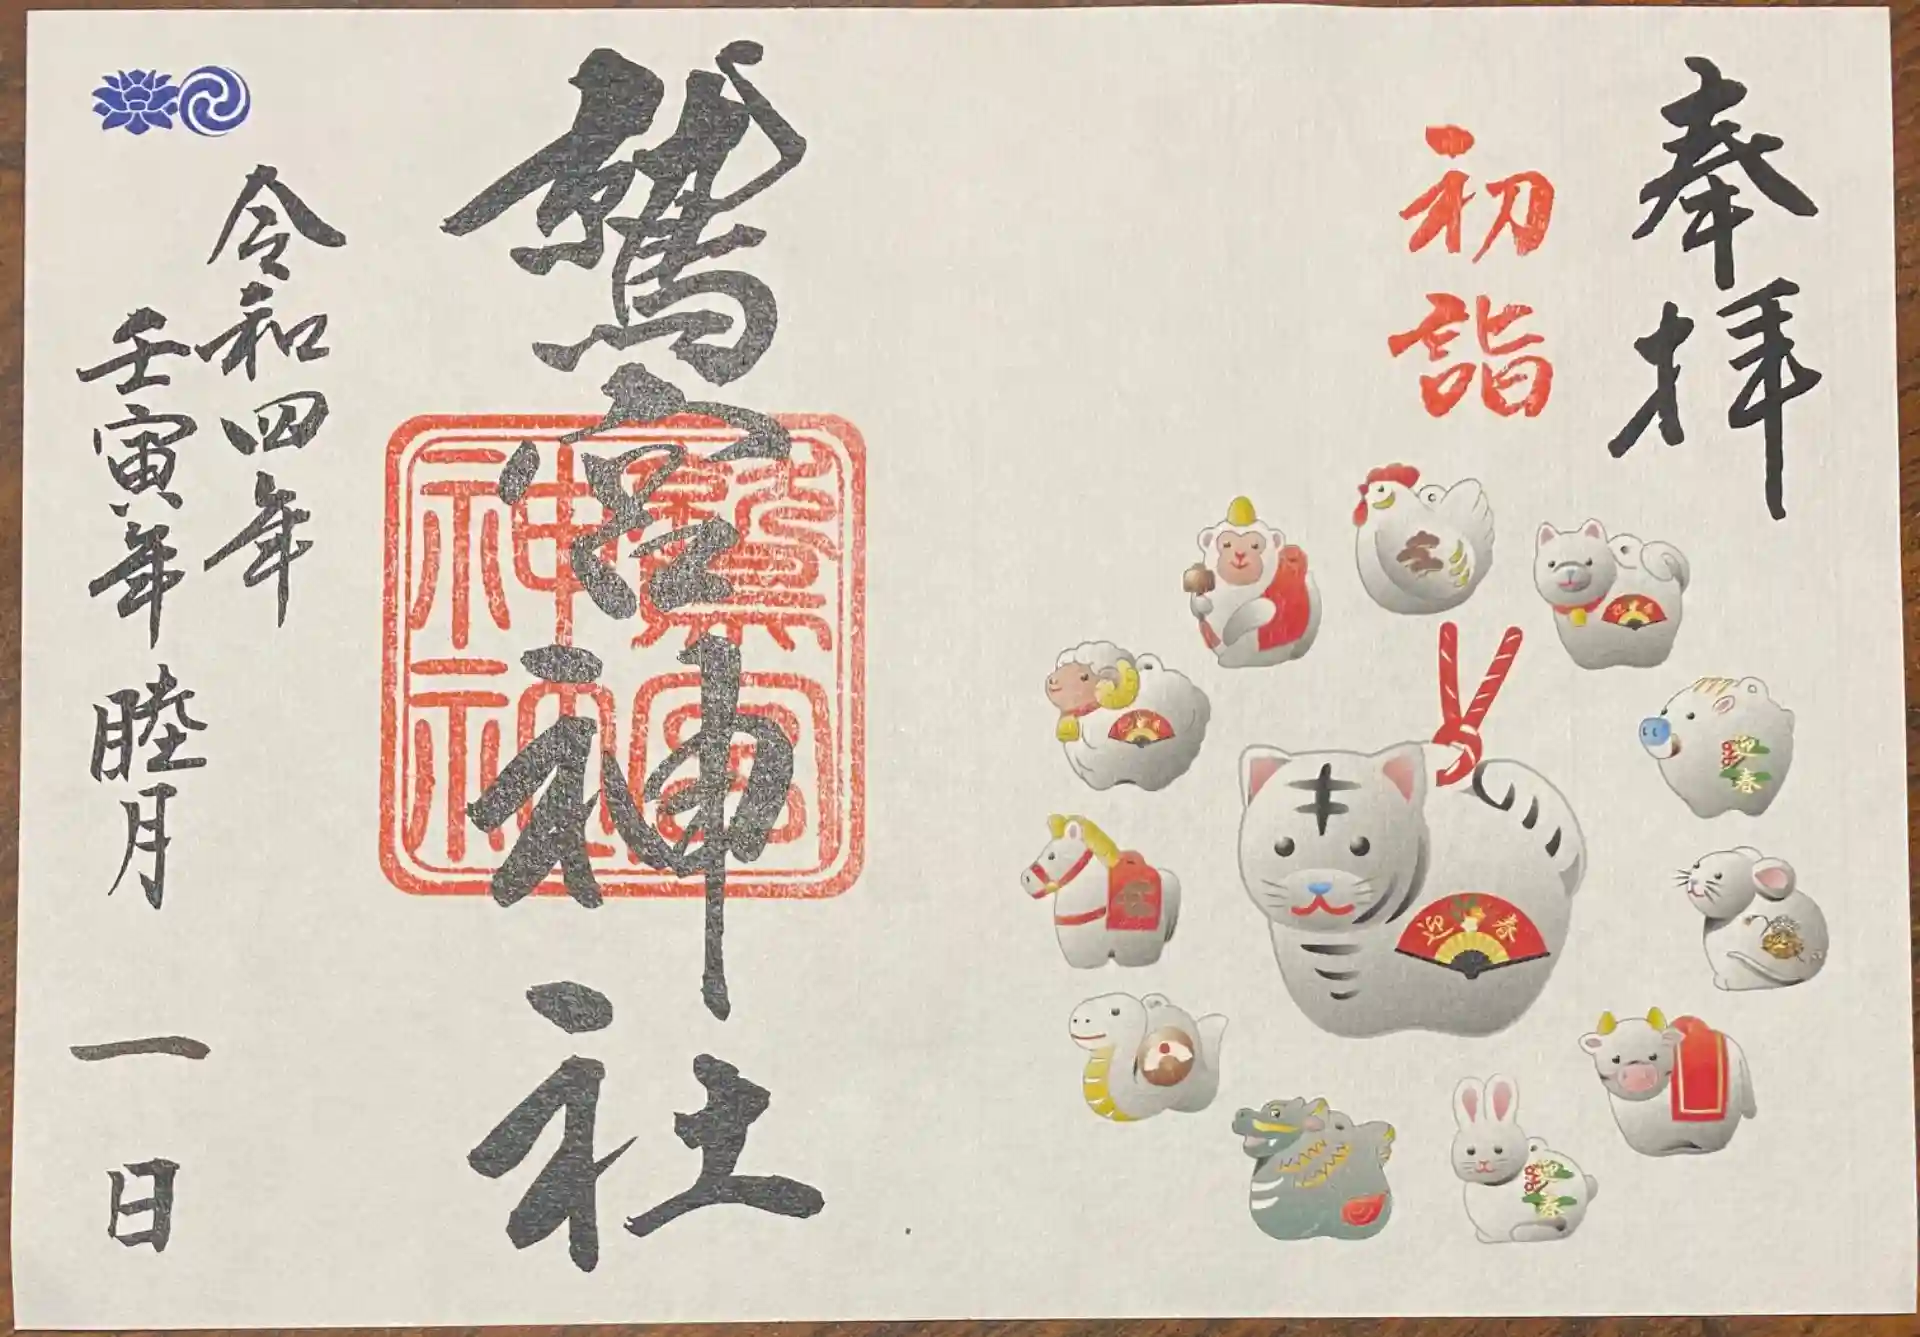 奉拝
初詣
迎春
迎春
迎春
鷲宮神社
鷲宮
神社
令和四年
壬寅年 睦月 一日